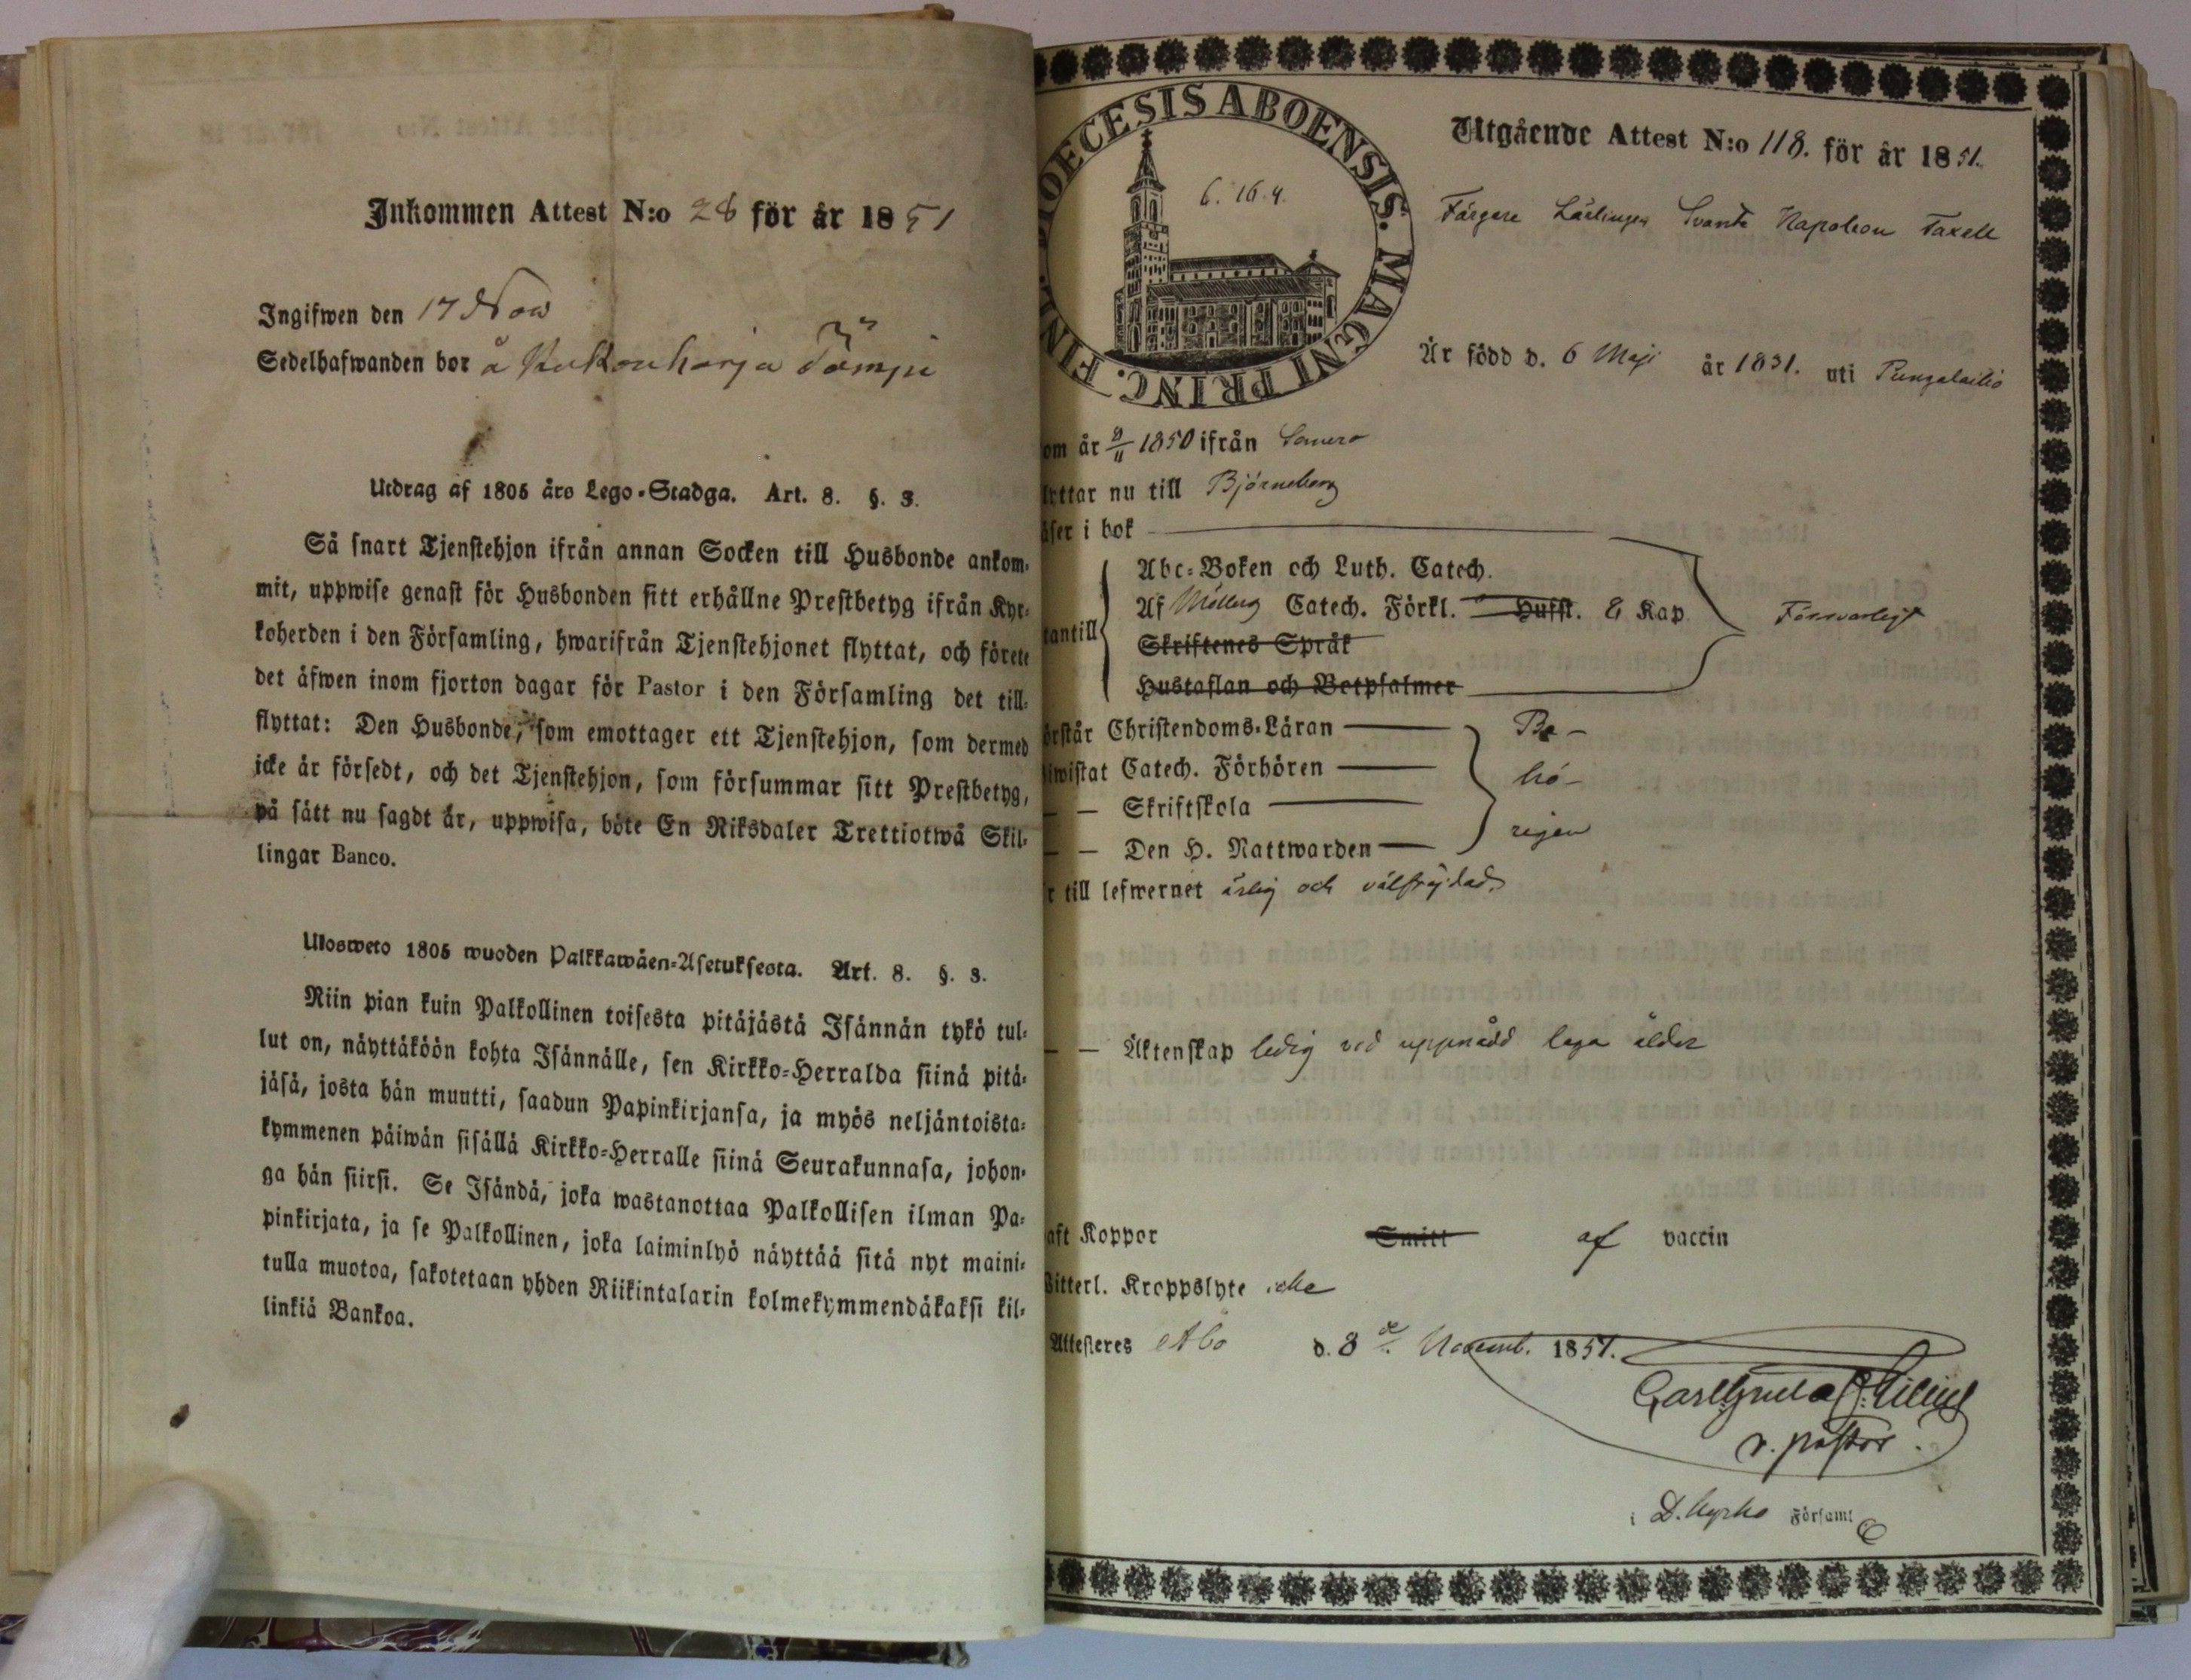 Inkommen Attest N:o 28 för år 1851
Ingifwen den 17 Nov
Sedelhafwanden bor å
Utdrag af 1805 års Lego-Stadga. Art. 8. §. 3.
Så snart Tjenstehjon ifrån annan Socken till Husbonde ankom-
mit, uppwise genast för Husbonden sitt erhållne Prestbetyg ifrån Kyr-
koherden i den Församling, hwarifrån Tjenstehjonet flyttat, och förete
det äfwen inom fjorton dagar för Pastor i den Församling det till-
flyttat: Den Husbonde, som emottager ett Tjenstehjon, som dermed
icke är försedt, och det Tjenstehjon, som försummar sitt Prestbetyg,
på sätt nu sagdt är, uppwisa, böte En Riksdaler Trettiotwå Skil-
lingar Banco.
Ulosweto 1805 wuoden Palkkawäen-Asetuksesta. Art. 8. §. 3.
Niin pian kuin Palkollinen toisesta pitäjästä Isännän tykö tul-
lut on, näyttäköön kohta Isännälle, sen Kirkko-Herralda siinä pitä-
jäsä, josta hän muutti, saadun Papinkirjansa, ja myös neljäntoista-
kymmenen päiwän sisällä Kirkko-Herralle siinä Seurakunnasa, johon-
ga hän siirsi. Se Isändä, joka wastanottaa Palkollisen ilman Pa-
pinkirjata, ja se Palkollinen, joka laiminlyö näyttää sitä nyt maini-
tulla muotoa, sakotetaan yhden Riikintalarin kolmekymmendäkaksi kil-
linkiä Bankoa.
DIOECESIS ABOENSIS. MAGNI PRINC. FINL.
6. 16. 4.
Utgående Attest N:o 118. för år 1851.
Färgare Lärlingen Svante Napoleon Taxell
Är född d. 6 Maji år 1831. uti Pungalaitio
om år 9/11 1850 ifrån Somero
lyttar nu till Björneborg
äser i bok
Abc-Boken och Luth. Catech.
Af Catech. Förkl. Hufst. & Kap.
Försvarligt
tantill
Skriftenes Språk
Hustaflan och Botpsalmer
örstår Christendoms-Läran Be-
iwistat Catech. Förhören hö-
— — Skriftskola
— — Den H. Nattwarden rigen
r till lefwernet ärlig och välfräjdad.
— — Äktenskap ledig vid uppnådd laga ålder
aft Koppor Smitt af vaccin
Witterl. Kroppslyte icke
Attesteres Åbo d. 8de Novemb. 1851.
v. pastor.
i D. kyrko Församl